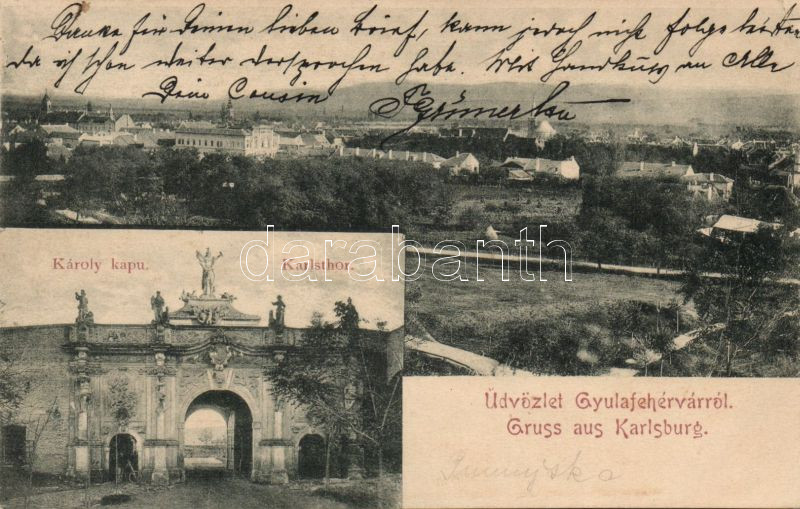 Danke für Deinen lieben Brief, kann jedoch nicht Folge leisten
da ich schon weiter versprochen habe. Mit Handkuss an Alle
Dein Cousin
Károly kapu.
Karlsthor.
darabanth
Üdvözlet Gyulafehérvárról.
Gruss aus Karlsburg.